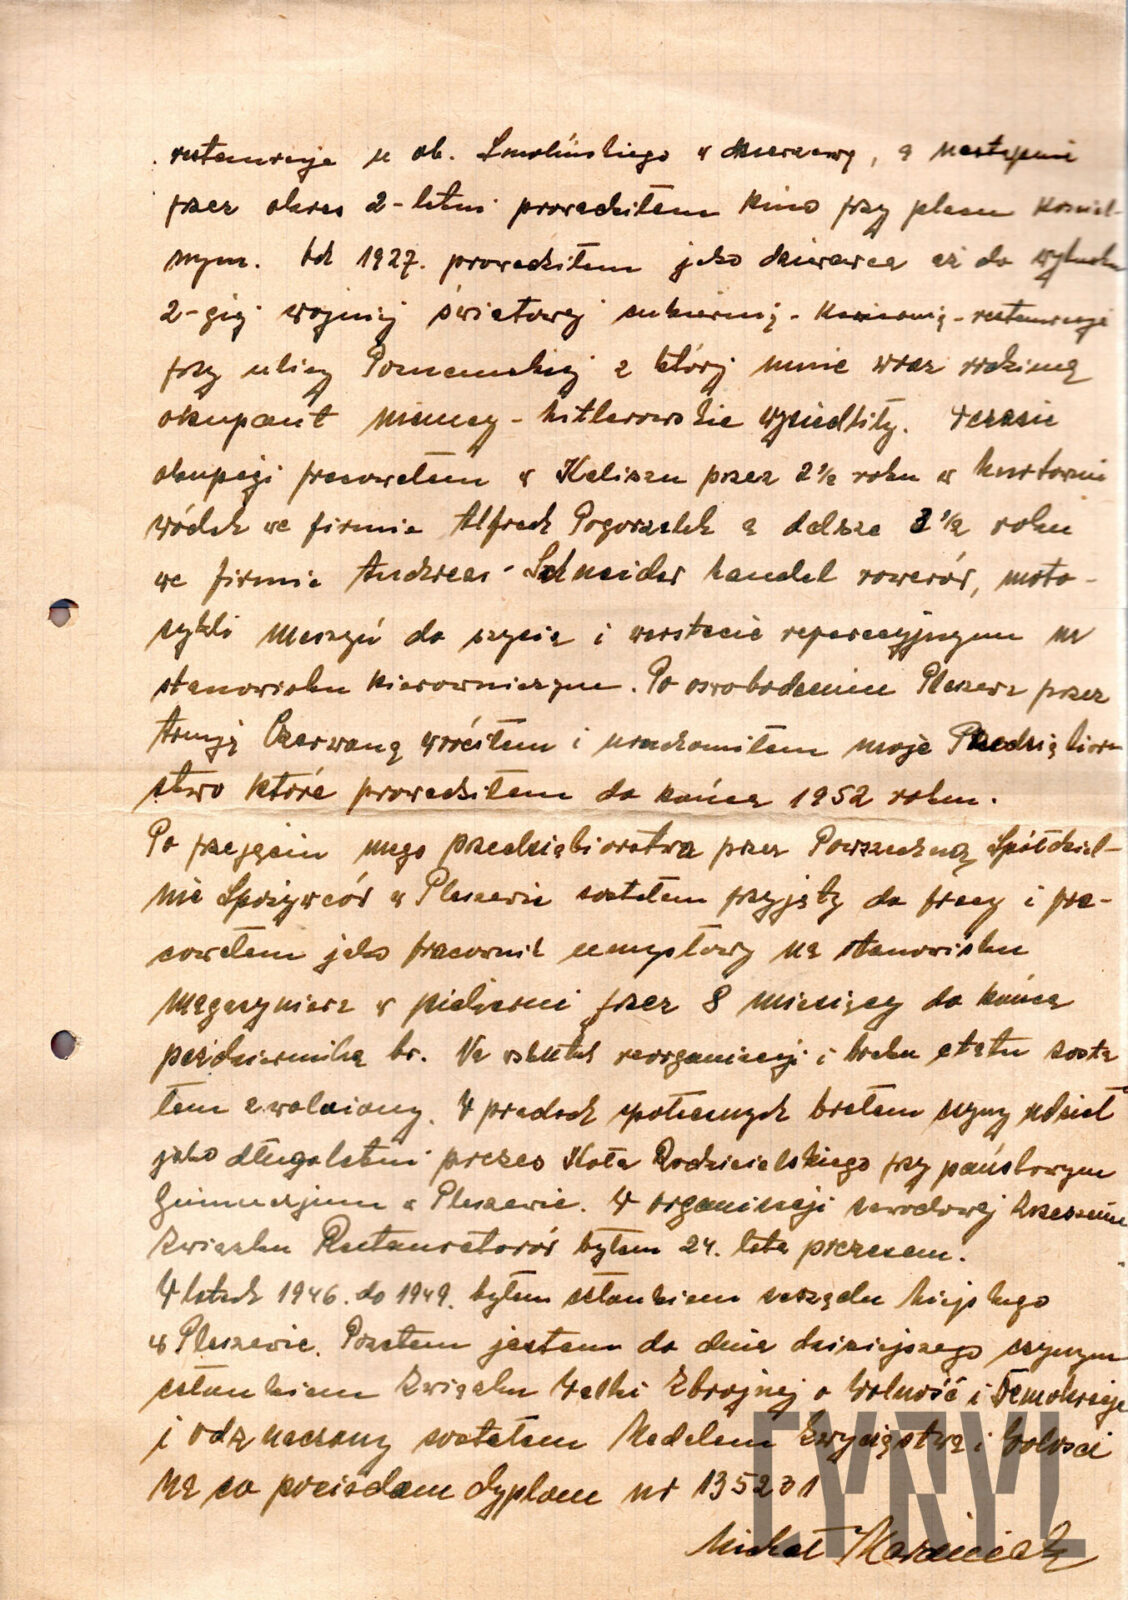 restauracje u ob. Smolińskiego w dzierżawę, a następnie
przez okres 2-letni prowadziłem Kino przy placu Kościel-
nym. Od 1927. prowadziłem jako dzierżawca aż do wybuchu
2-giej wojny światowej cukiernię - Kawiarnię - restaurację
przy ulicy Poznańskiej z której mnie wraz rodziną
okupant niemcy - hitlerowskie wysiedliły. W czasie
okupacji pracowałem w Kaliszu przez 2½ roku w hurtowni
wódek we firmie Alfred Pogorzelek a dalsze 3½ roku
we firmie Andreas - Schneider handel rowerów, moto-
cykli maszyn do szycia i warstacie reperacyjnym na
stanowisku kierowniczym. Po oswobodzeniu Pleszewa przez
Armję Czerwoną wróciłem i uruchomiłem moje Przedsiębior-
stwo które prowadziłem do końca 1952 roku.
Po przejęciu mego przedsiębiorstwa przez Powszechną Spółdziel-
nie Spożywców w Pleszewie zostałem przyjęty do pracy i pra-
cowałem jako pracownik umysłowy na stanowisku
magazyniera w piekarni przez 8 miesięcy do końca
października br. Na skutek reorganizacji i braku etatu zosta
łem zwolniony. W pracach społecznych brałem czynny udział
jako długoletni prezes Koła Rodzicielskiego przy państwowym
Gimnazjum w Pleszewie. W organizacji zawodowej Zrzeszenie
Związku Restauratorów byłem 24. lata prezesem.
W latach 1946. do 1949. byłem członkiem zarządu Miejskiego
w Pleszewie. Pozatem jestem do dnia dzisiejszego czynnym
członkiem Związku Walki Zbrojnej o Wolność i Demokrację
i odznaczony zostałem Medalem Zwycięstwa i Wolności
na co posiadam dyplom nr 135231
Michał Marciniak
CYRYL